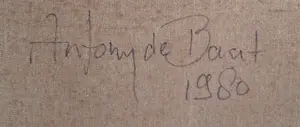 Antony de Baat
1980